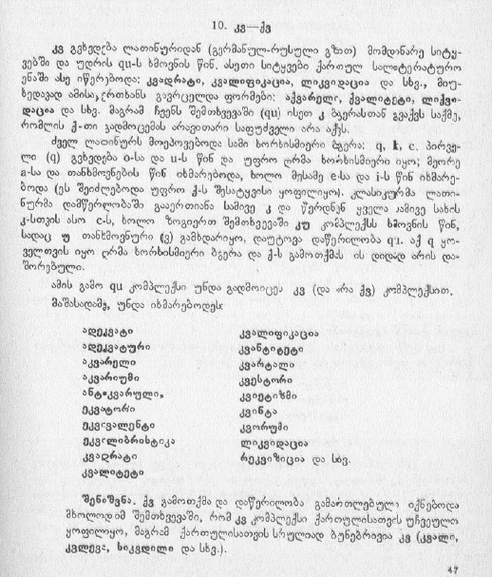 10. კვ—ქვ
კვ გვხვდება ლათინურიდან (გერმანულ-რუსული გზით) მომდინარე სიტყ-
ვებში და უდრის qu-ს ხმოვნის წინ. ასეთი სიტყვები ქართულ სალიტერატურო
ენაში ასე იწერებოდა: კვადრატი, კვალიფიკაცია, ლიკვიდაცია და სხვ., მიუ-
ხედავად ამისა, ერთხანს გავრცელდა ფორმები: აქვარელი, ქვალიტეტი, ლიქვი-
დაცია და სხვ. მაგრამ ჩვენს შემთხვევაში (qu) ისეთ კ ბგერასთან გვაქვს საქმე,
რომლის ქ-თი გადმოცემას არავითარი საფუძველი არა აქვს.
ძველ ლათინურს მოეპოვებოდა სამი ხორხისმიერი ბგერა: q, k, c. პირვე-
ლი (q) გვხვდება o-სა და u-ს წინ და უფრო ღრმა ხორხისმიერი იყო; მეორე
a-სა და თანხმოვნების წინ იხმარებოდა, ხოლო მესამე e-სა და i-ს წინ იხმარე-
ბოდა (ეს შეიძლებოდა უფრო ქ-ს შესატყვისი ყოფილიყო). კლასიკურმა ლათი-
ნურმა დამწერლობაში გააერთიანა სამივე კ და წერდნენ ყველა სამივე სახის
კ-სთვის ასო c-ს, ხოლო ზოგიერთ შემთხვევაში კუ კომპლექსს ხმოვნის წინ,
სადაც უ თანხმოვნური (ვ) გამხდარიყო, დაუტოვა დაწერილობა qu. აქ q ყო-
ველთვის იყო ღრმა ხორხისმიერი ბგერა და ქ-ს გამოთქმას ის დიდად არის და-
შორებული.
ამის გამო qu კომპლექსი უნდა გადმოიცეს კვ (და არა ქვ) კომპლექსით.
მაშასადამე, უნდა იხმარებოდეს:
ადეკვატი
ადეკვატური
აკვარელი
აკვარიუმი
ანტიკვარული
ეკვატორი
ეკვივალენტი
ეკვილიბრისტიკა
კვადრატი
კვალიტეტი
კვალიფიკაცია
კვანტიტეტი
კვარტალი
კვესტორი
კვიეტიზმი
კვინტა
კვორუმი
ლიკვიდაცია
რეკვიზიცია და სხვ.
შენიშვნა. ქვ გამოთქმა და დაწერილობა გამართლებული იქნებოდა
მხოლოდ იმ შემთხვევაში, რომ კვ კომპლექსი ქართულისათვის უჩვეულო
ყოფილიყო, მაგრამ ქართულისათვის სრულიად ბუნებრივია კვ (კვალი,
კვლევა, სიკვდილი და სხვ.).
47